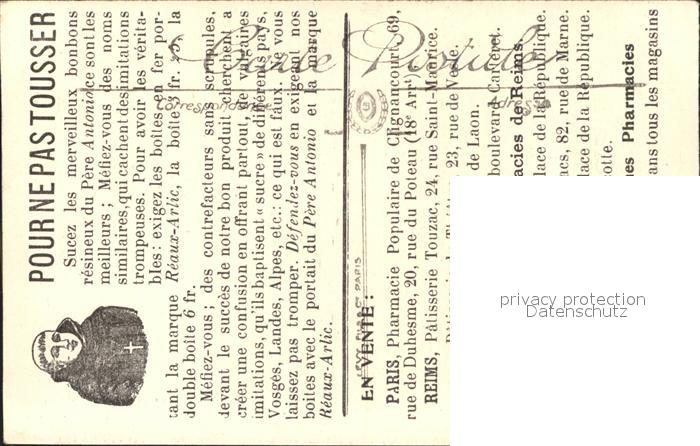 POUR NE PAS TOUSSER
Sucez les merveilleux bonbons
résineux du Père Antonio ce sont les
meilleurs ; Méfiez-vous des noms
similaires, qui cachent des imitations
trompeuses. Pour avoir les vérita-
bles : exigez les boîtes en fer por-
tant la marque Réaux-Arlic, la boîte 3 fr. la
double boîte 6 fr.
Méfiez-vous ; des contrefacteurs sans scrupules,
devant le succès de notre bon produit cherchent a
créer une confusion en offrant partout, de vulgaires
imitations, qu'ils baptisent « sucre » de différents pays,
Vosges, Landes, Alpes, etc.: ce qui est faux. Ne vous
laissez pas tromper. Défendez-vous en exigeant nos
boites avec le portait du Père Antonio et la marque
Réaux-Arlic.
Carte Postale
Correspondance
Adresse
PARIS
EN VENTE :
PARIS, Pharmacie Populaire de Clignancourt, 69,
rue de Duhesme, 20, rue du Poteau (18e Arrt)
REIMS, Pâtisserie Touzac, 24, rue Saint-Maurice.
23, rue de Vesle.
de Laon.
boulevard Carteret.
acies de Reims.
lace de la République.
acs, 82, rue de Marne.
lace de la République.
otte.
nes Pharmacies
ans tous les magasins
privacy protection
Datenschutz